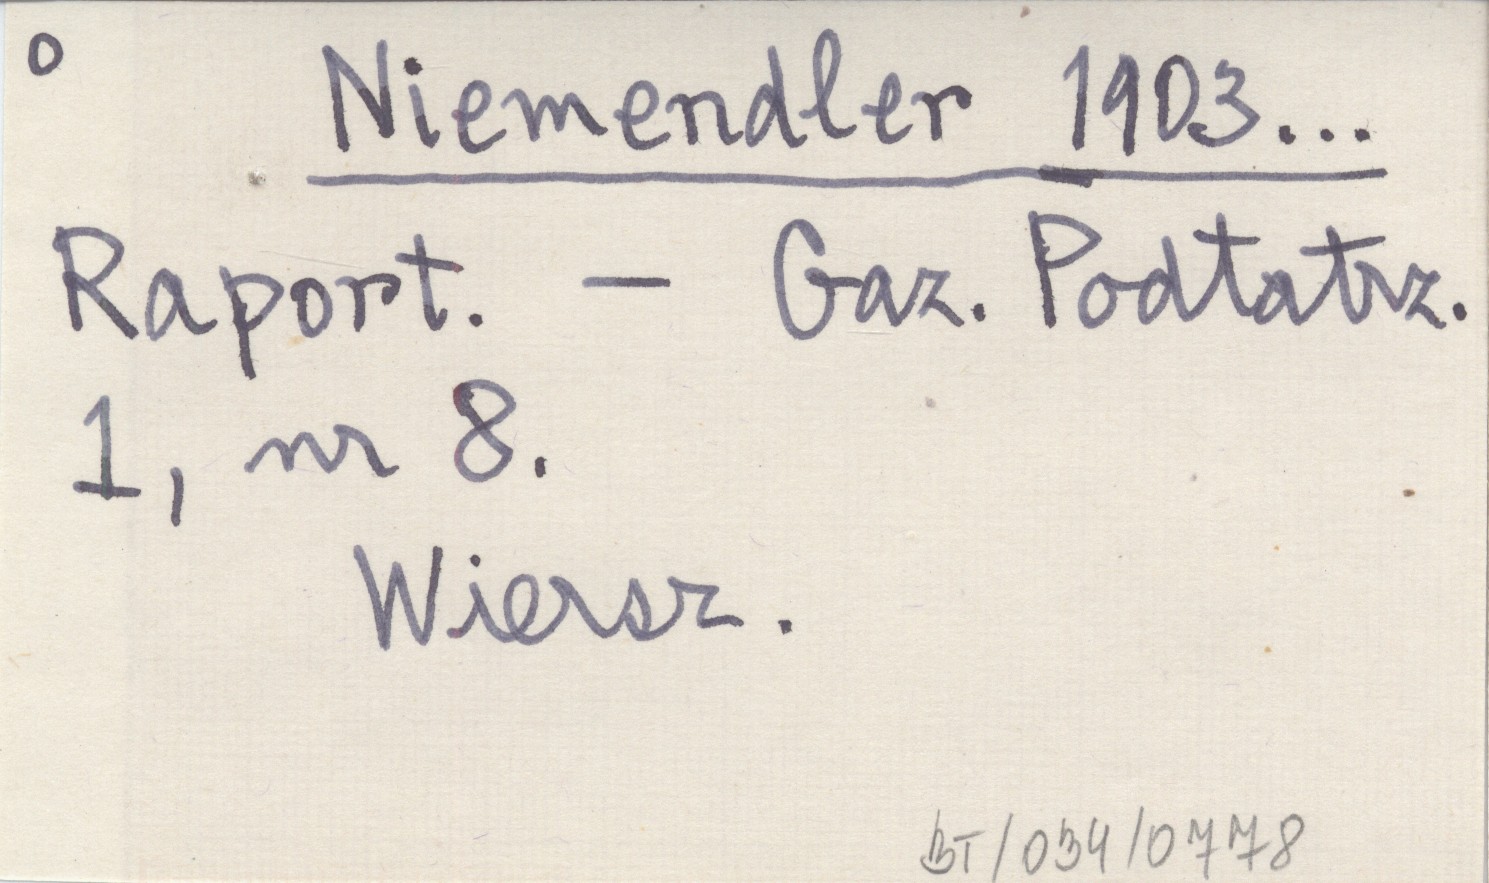 o
Niemendler 1903...
Raport. — Gaz. Podtatrz.
1, nr 8.
Wiersz.
BT/034/0778